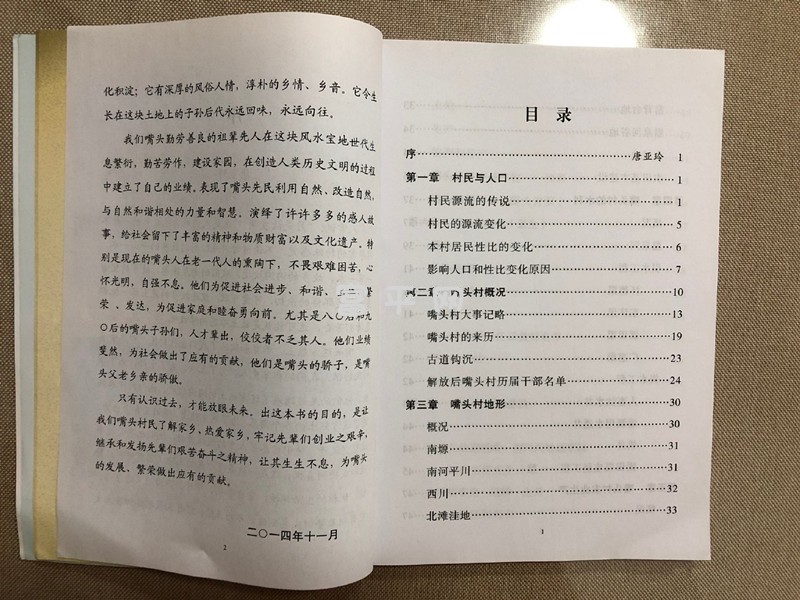 化积淀；它有深厚的风俗人情，淳朴的乡情、乡音。它令生
长在这块土地上的子孙后代永远回味，永远向往。
我们嘴头勤劳善良的祖辈先人在这块风水宝地世代生
息繁衍，勤苦劳作，建设家园，在创造人类历史文明的过程
中建立了自己的业绩。表现了嘴头先民利用自然、改造自然，
与自然和谐相处的力量和智慧。演绎了许许多多的感人故
事，给社会留下了丰富的精神和物质财富以及文化遗产。特
别是现在的嘴头人在老一代人的熏陶下，不畏艰难困苦，心
怀光明，自强不息。他们为促进社会进步、和谐、繁
荣、发达，为促进家庭和睦奋勇向前。尤其是八〇后和九
〇后的嘴头子孙们，人才辈出，佼佼者不乏其人。他们业绩
斐然，为社会做出了应有的贡献，他们是嘴头的骄子，是嘴
头父老乡亲的骄傲。
只有认识过去，才能放眼未来。出这本书的目的，是让
我们嘴头村民了解家乡、热爱家乡，牢记先辈们创业之艰辛，
继承和发扬先辈们艰苦奋斗之精神，让其生生不息，为嘴头
的发展、繁荣做出应有的贡献。
二〇一四年十一月
2
目 录
序……唐亚玲 1
第一章 村民与人口……1
村民源流的传说……1
村民的源流变化……5
本村居民性比的变化……6
影响人口和性比变化原因……7
第二章 嘴头村概况……10
嘴头村大事记略……13
嘴头村的来历……19
古道钩沉……23
解放后嘴头村历届干部名单……24
第三章 嘴头村地形……30
概况……30
南塬……31
南河平川……31
西川……32
北滩洼地……33
1